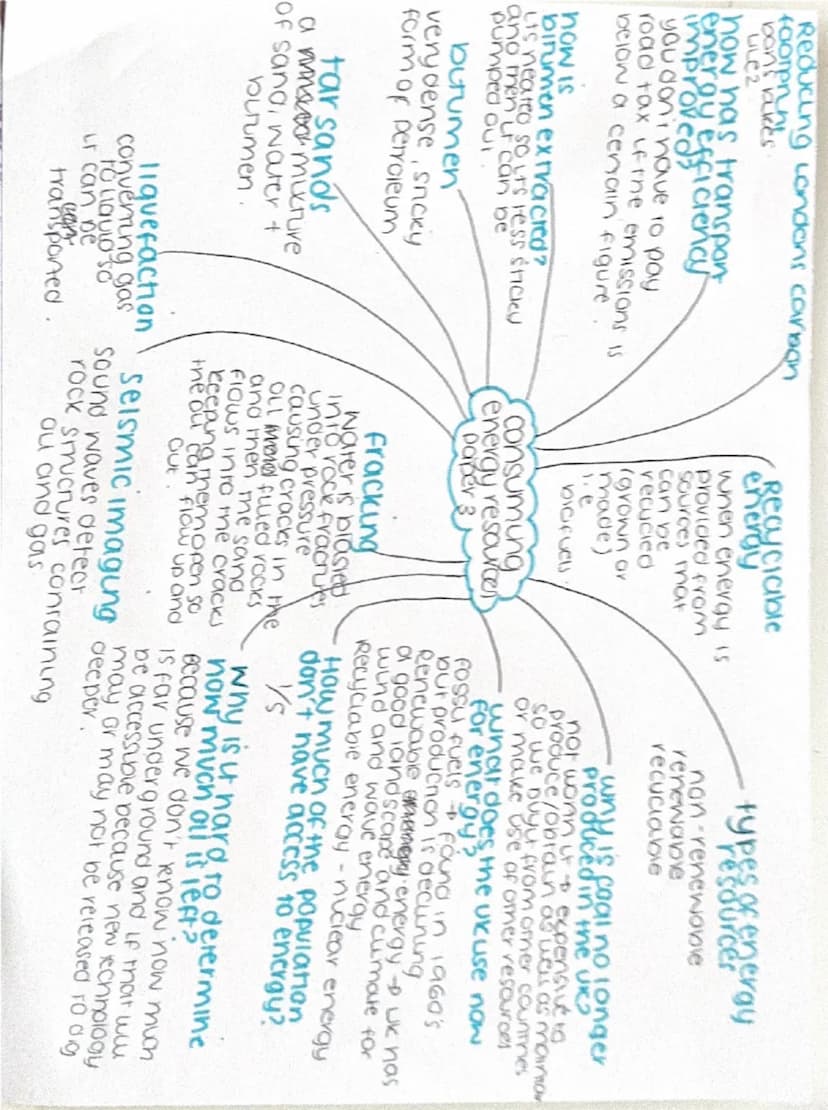 consuming
energy resources
paper 3
Reducing Londons carbon
footprint
bans taxes
ulez
how has transport
energy efficiency
improved?
you don't have to pay
road tax if the emissions is
below a certain figure
how is
bitumen extracted?
its heated so its less sticky
and then it can be
pumped out.
bitumen
very dense, sticky
form of petroleum
tar sands
a mixture
of sand, water +
bitumen.
liquefaction
converting gas
to liquid so
it can be
transported.
seismic imaging
sound waves detect
rock structures containing
oil and gas
fracking
water is blasted
into rock fractures
under pressure
causing cracks in the
oil filled rocks
and then the sand
flows into the cracks
keeping them open so
the oil can flow up and
out.
Recyclable
energy
when energy is
provided from
sources that
can be
recycled
(grown or
made)
i.e.
biofuel.
types of energy
resources
non-renewable
renewable
recyclable
why is coal no longer
produced in the uk?
not worth it → expensive to
produce/obtain as well as maintain
so we buy it from other countries
or make use of other resources
what does the uk use now
for energy?
fossil fuels → found in 1960's
but production is declining
Renewable energy → uk has
a good landscape and climate for
wind and wave energy
Recyclable energy - nuclear energy
How much of the population
don't have access to energy?
1/5
Why is it hard to determine
how much oil is left?
Because we don't know how much
is far underground and if that will
be accessible because new technology
may or may not be released to dig
deeper.